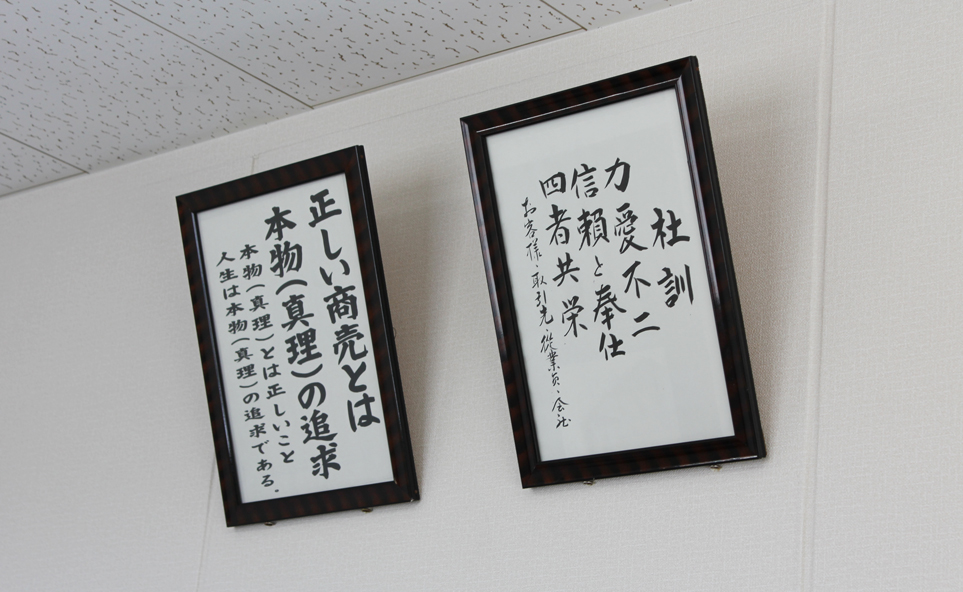 社訓
力愛不二
信頼と奉仕
四者共栄
お客様・取引先・従業員・会社
正しい商売とは
本物(真理)の追求
本物(真理)とは正しいこと
人生は本物(真理)の追求である.